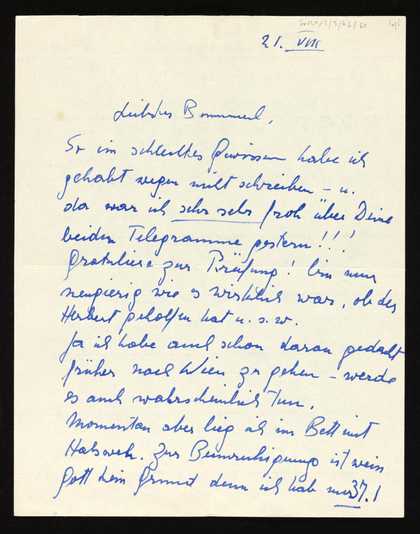 21. VIII
Liebstes Bommerl,
So ein schlechtes Gewissen habe ich
gehabt wegen nicht schreiben – u.
da war ich sehr sehr froh über Deine
beiden Telegramme gestern!!!
Gratuliere zur Prüfung! Bin nur
neugierig wie es wirklich war, ob der
Herbert geholfen hat u. s. w.
Ja ich habe auch schon daran gedacht
früher nach Wien zu gehen – werde
es auch wahrscheinlich tun.
Momentan aber lieg ich im Bett mit
Halsweh. Zur Beunruhigung ist weiss
Gott kein Grund denn ich hab nur 37.1